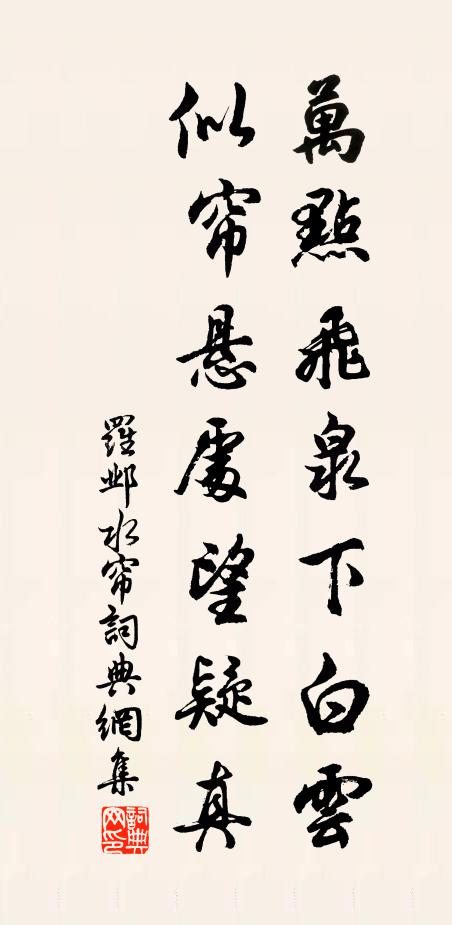 萬點飛泉下白雲
似帘悬處望疑真
羅邺水帘詞典網集
詞典网印